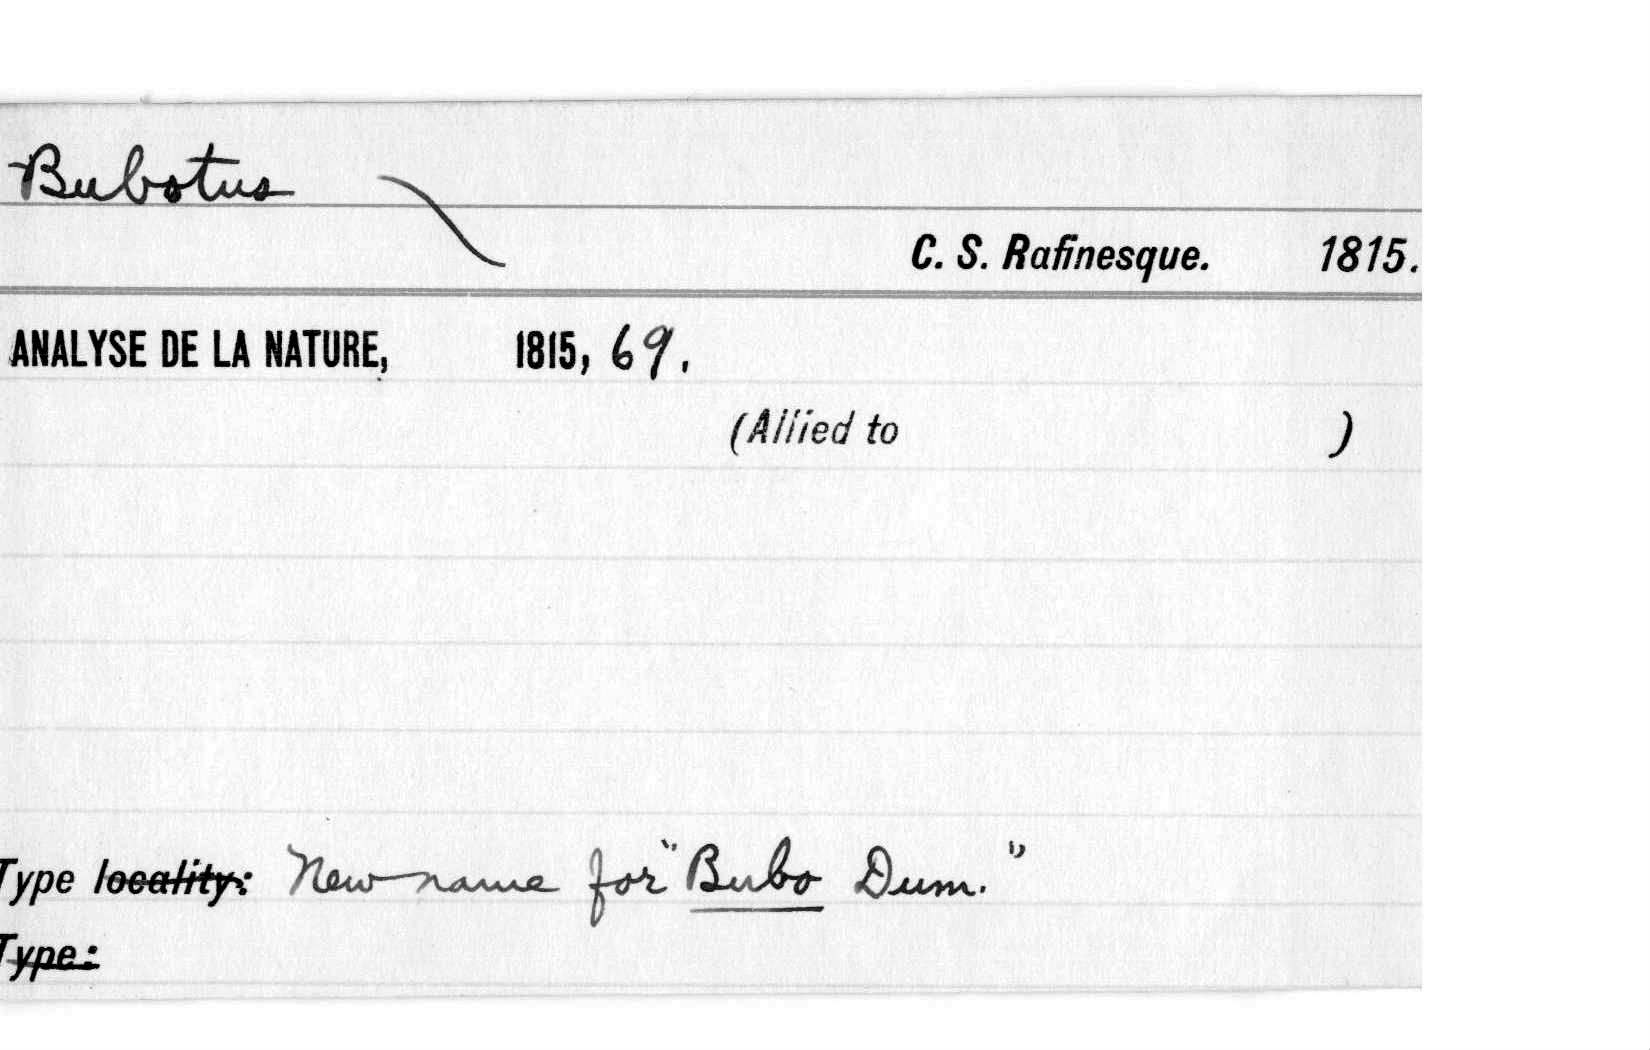 Bubotus
C. S. Rafinesque. 1815.
ANALYSE DE LA NATURE, 1815, 69.
(Allied to )
Type locality: New name for "Bubo Dum."
Type: